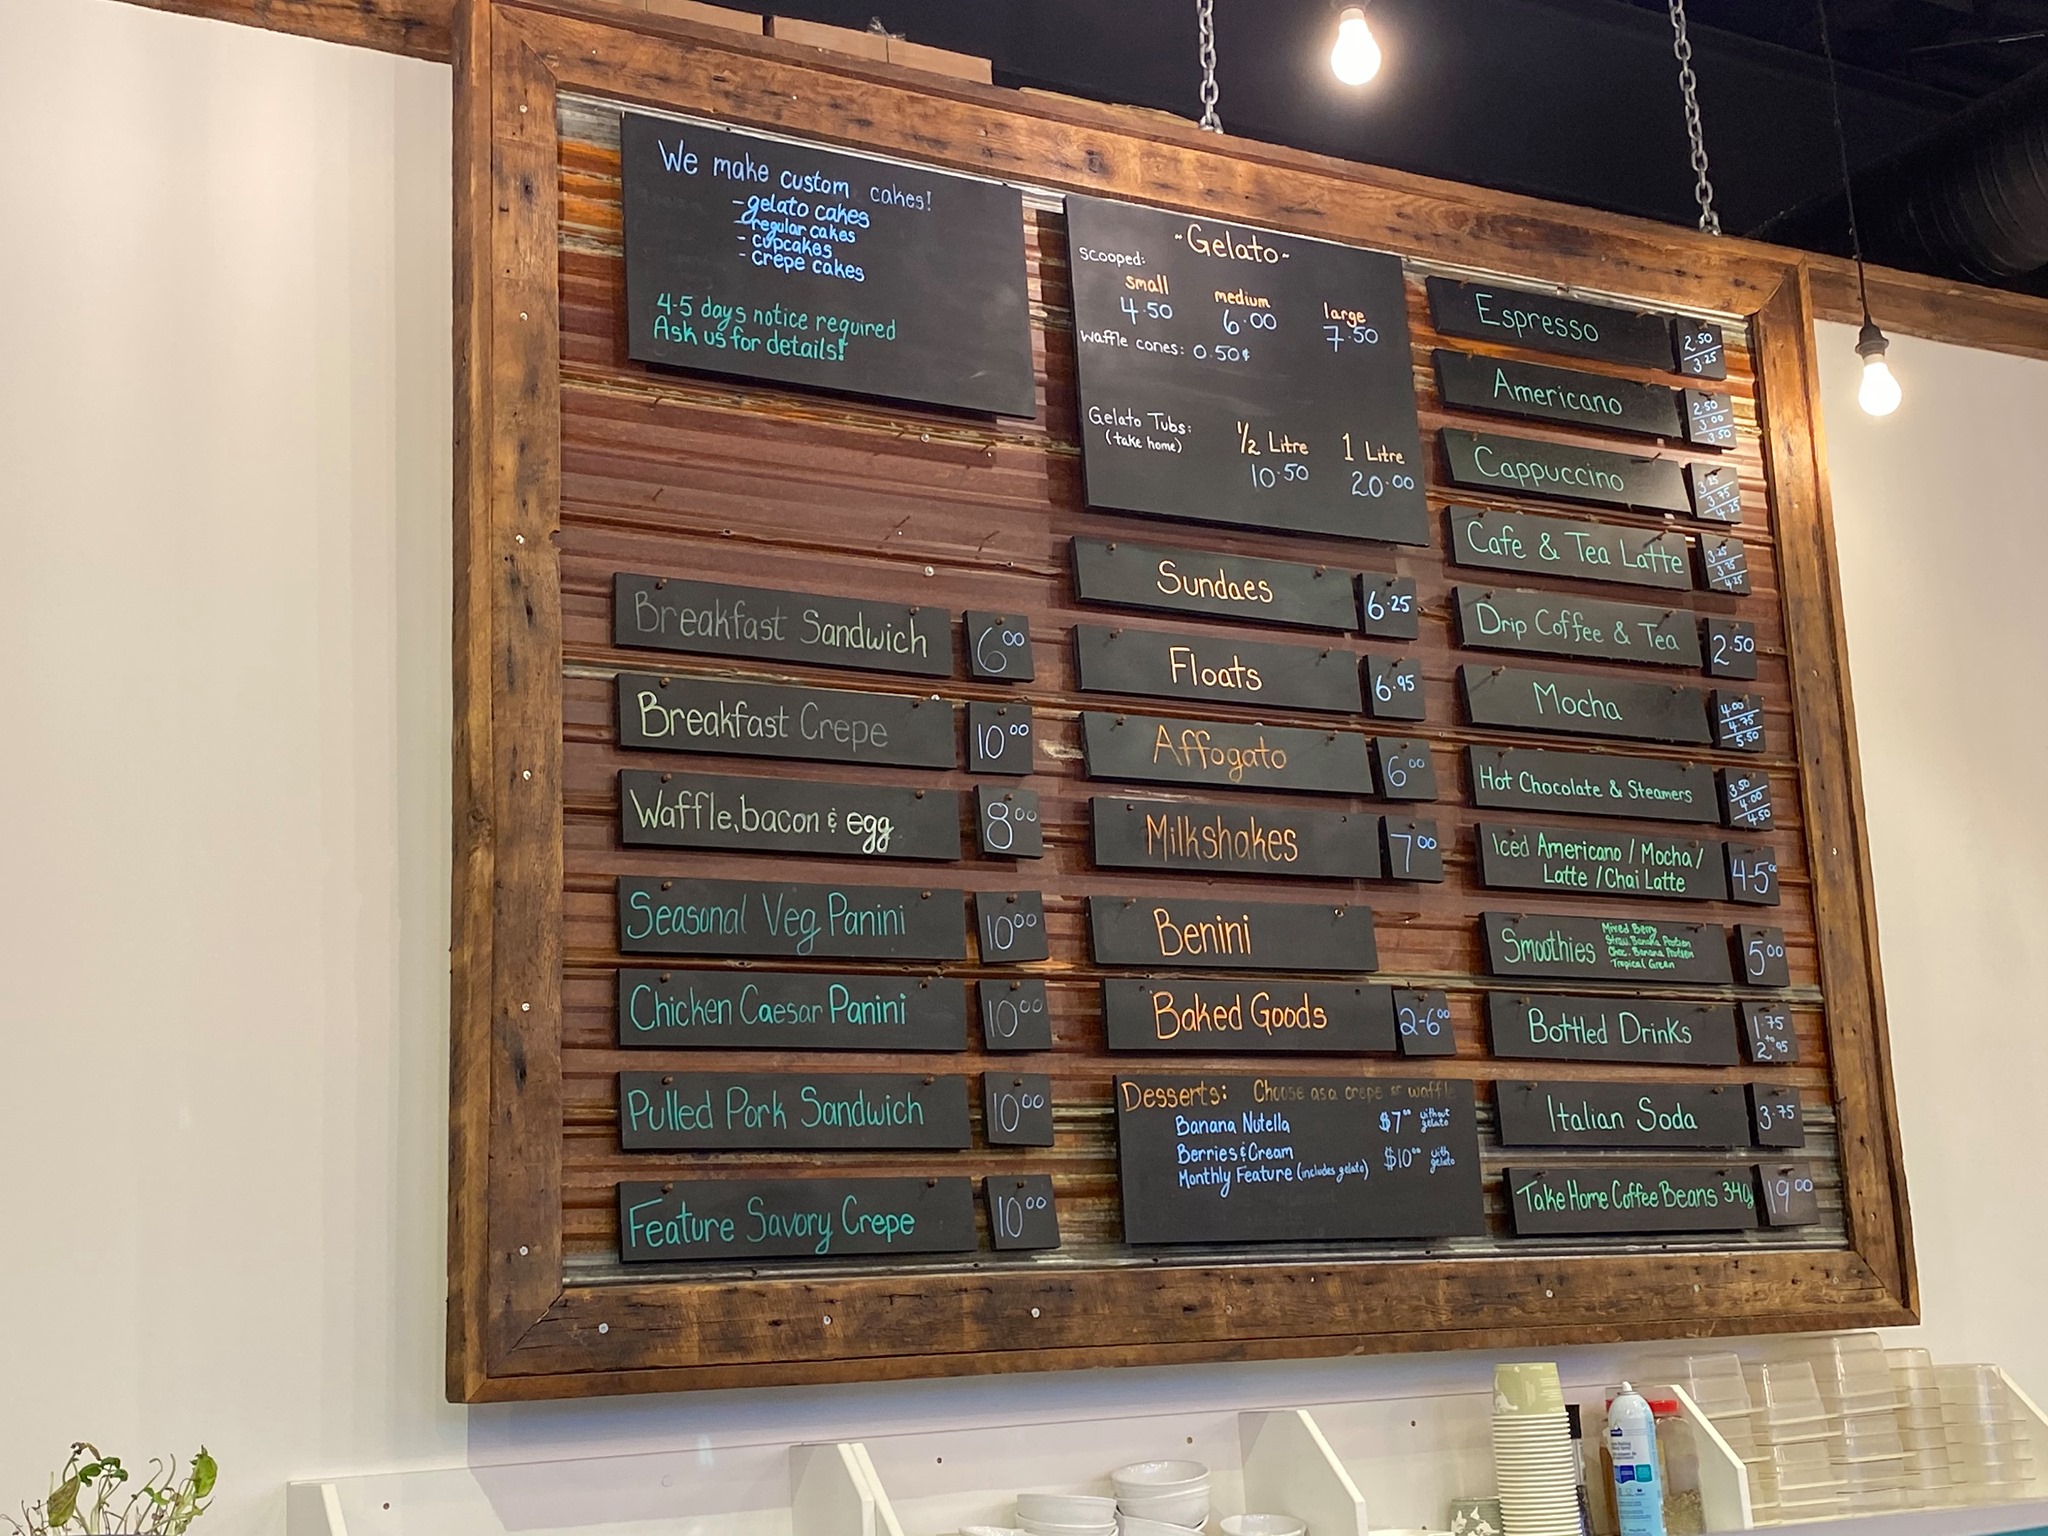 We make custom cakes!
- gelato cakes
- regular cakes
- cupcakes
- crepe cakes
4-5 days notice required
Ask us for details!
Breakfast Sandwich 6.00
Breakfast Crepe 10.00
Waffle, bacon & egg 8.00
Seasonal Veg Panini 10.00
Chicken Caesar Panini 10.00
Pulled Pork Sandwich 10.00
Feature Savory Crepe 10.00
~Gelato~
scooped:
small medium large
4.50 6.00 7.50
waffle cones: 0.50¢
Gelato Tubs: 1/2 Litre 1 Litre
(take home) 10.50 20.00
Sundaes 6.25
Floats 6.95
Affogato 6.00
Milkshakes 7.00
Benini
Baked Goods 2-6.00
Desserts: Choose as a crepe or waffle
Banana Nutella $7.00 without gelato
Berries & Cream
Monthly Feature (includes gelato) $10.00 with gelato
Espresso 2.50 3.25
Americano 2.50 3.00 3.50
Cappuccino 3.25 3.75 4.25
Cafe & Tea Latte 3.25 3.75 4.25
Drip Coffee & Tea 2.50
Mocha 4.00 4.75 5.50
Hot Chocolate & Steamers 3.50 4.00 4.50
Iced Americano / Mocha /
Latte / Chai Latte 4-5.00
Smoothies 5.00
Mixed Berry
Straw. Banana Protien
Choc. Banana Protien
Tropical Green
Bottled Drinks 1.75 to 2.95
Italian Soda 3.75
Take Home Coffee Beans 340g 19.00